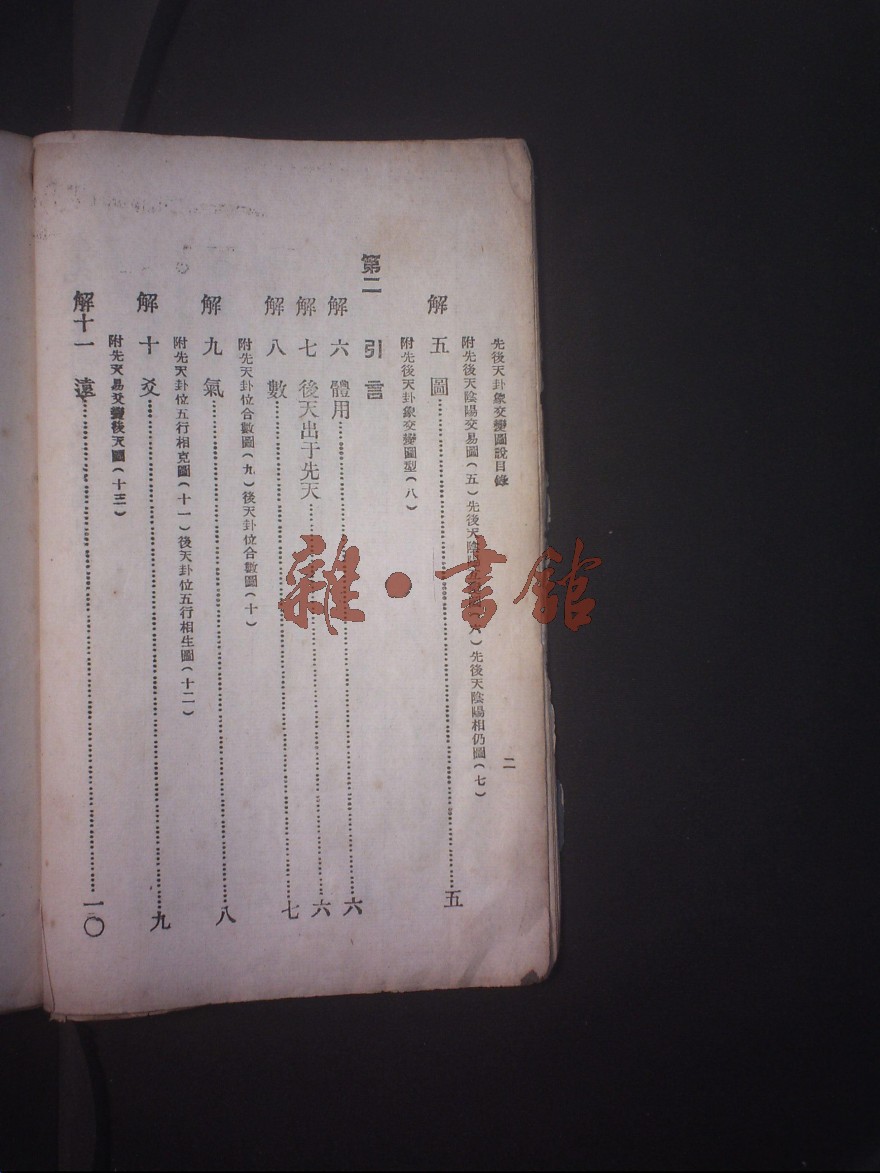 先後天卦象交變圖說目錄
二
附先後天陰陽交易圖(五)先後天陰陽 六)先後天陰陽相仍圖(七)
解五 圖……五
附先後天卦象交變圖型(八)
第二 引言
解六 體用……六
解七 後天出于先天……六
解八 數……七
附先天卦位合數圖(九)後天卦位合數圖(十)
解九 氣……八
附先天卦位五行相克圖(十一)後天卦位五行相生圖(十二)
解十 爻……九
附先天易爻變後天圖(十三)
解十一 遠……一〇
雜·書館